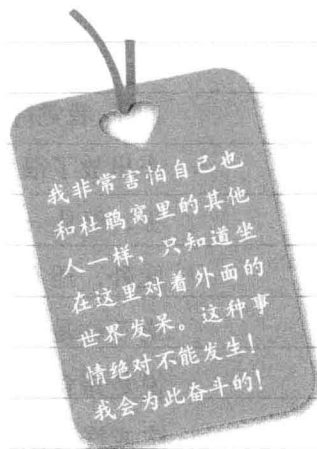 我非常害怕自己也
和杜鹃窝里的其他
人一样，只知道坐
在这里对着外面的
世界发呆。这种事
情绝对不能发生！
我会为此奋斗的！